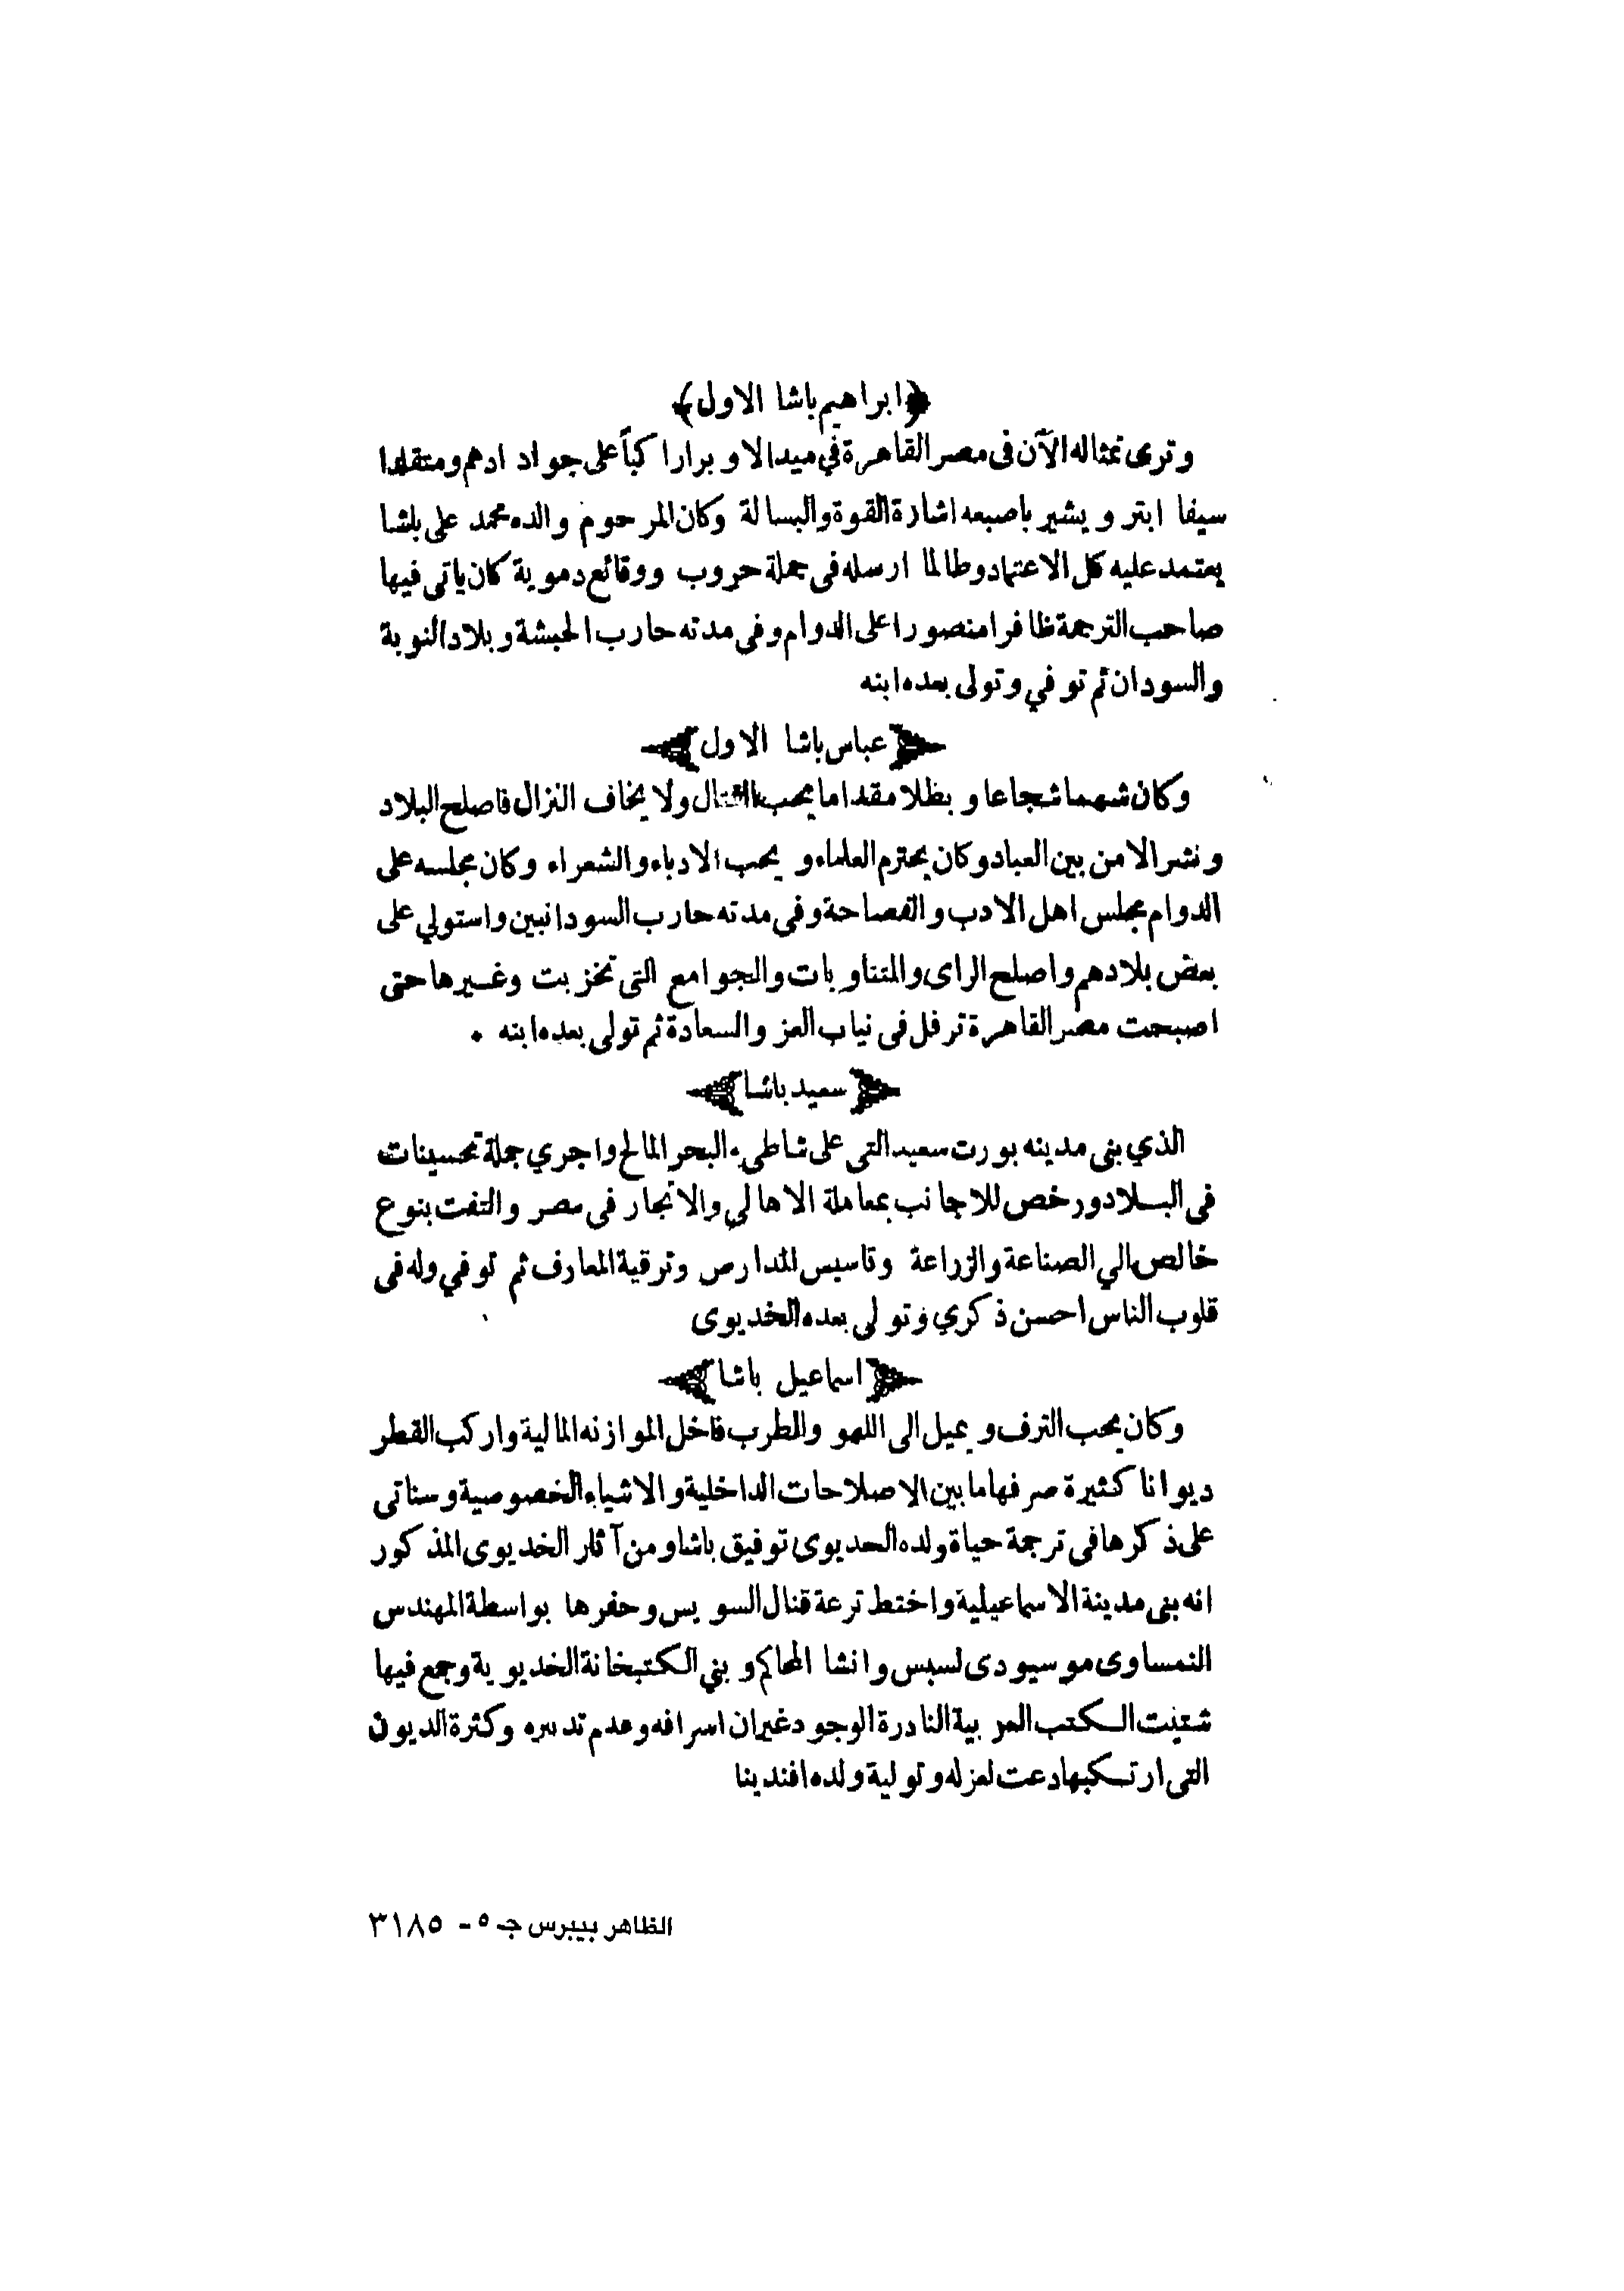 ﴿ابراهيم باشا الاول﴾
وترى تمثاله الآن فى مصر القاهرة في ميدالاوبرا راكباً على جواد ادهم ومتقلدا
سيفا ابتر ويشير باصبعه اشارة القوة والبسالة وكان المرحوم والده محمد على باشا
يعتمد عليه كل الاعتماد وطالما ارسله فى جملة حروب ووقائع دموية كان ياتى فيها
صاحب الترجمة ظافرا منصورا على الدوام وفى مدته حارب الحبشة وبلاد النوبة
والسودان ثم توفي وتولى بعده ابنه
﴿عباس باشا الاول﴾
وكان شهما شجاعا وبظلا مقداما يحب القتال ولا يخاف النزال فاصلح البلاد
ونشر الامن بين العباد وكان يحترم العلماء ويحب الادباء والشعراء وكان مجلسه على
الدوام مجلس اهل الادب والفصاحة وفى مدته حارب السودانبين واستولي على
بعض بلادهم واصلح الراى والمتناوبات والجوامع التى تخزبت وغيرها حتى
اصبحت مصر القاهرة ترفل فى نياب العز والسعادة ثم تولى بعده ابنه .
﴿سعيد باشا﴾
الذي بنى مدينه بورت سعيد التى على شاطىء البحر المالح واجري جملة تحسينات
فى البلاد ورخص للاجانب بمعاملة الاهالي والاتجار فى مصر والتفت بنوع
خالص الي الصناعة والزراعة وتاسيس المدارس وترقية المعارف ثم توفي وله فى
قلوب الناس احسن ذكري وتولى بعده الخديوى
﴿اسماعيل باشا﴾
وكان يحب الترف ويميل الى اللهو والطرب فاخل الموازنه المالية واركب القطر
ديوانا كثيرة صرفها ما بين الاصلاحات الداخلية والاشياء الخصوصية وسناتى
على ذكرها فى ترجمة حياة ولده الحديوى توفيق باشا ومن آثار الخديوى المذكور
انه بنى مدينة الاسماعيلية واختط ترعة قنال السويس وحفرها بواسطة المهندس
النمساوى موسيودى لسبس وانشا المحاكم وبني الكتبخانة الخديوية وجمع فيها
شتيت الكتب العربية النادرة الوجود غيران اسرافه وعدم تدبيره وكثرة الديون
التى ارتكبها دعت لعزله وتولية ولده افندينا
الظاهر بيبرس جـ ٥ - ٣١٨٥